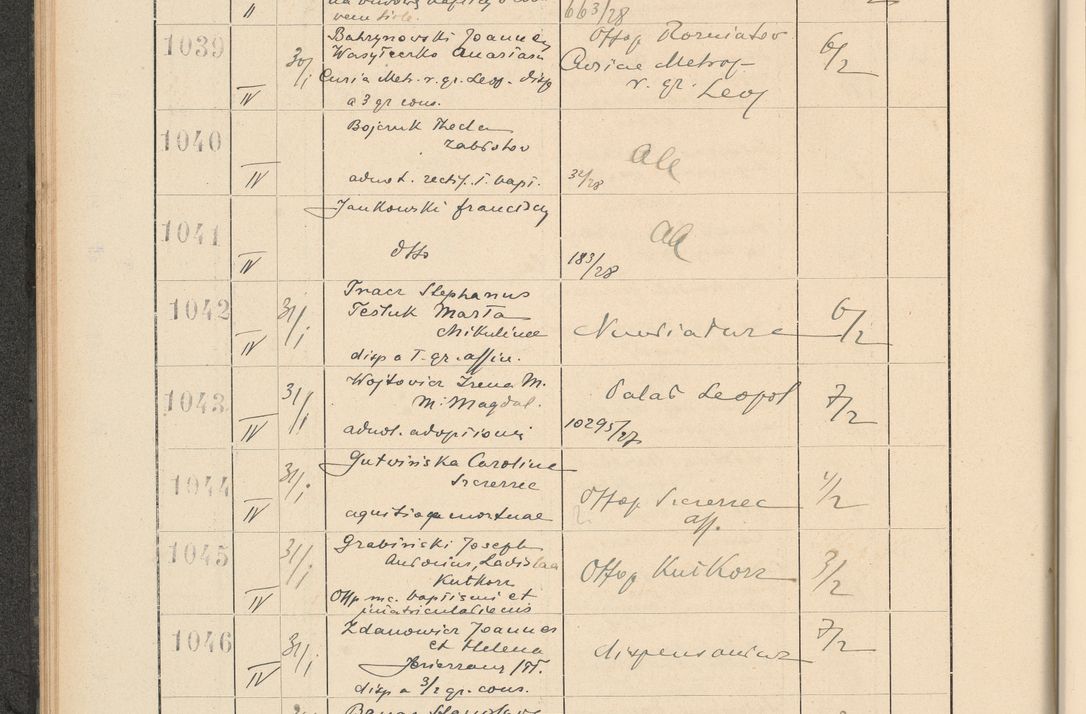 II
663/28
1039
IV
30/I
Batrynowski Joannes
Wasyłeczko Anastasia
Curia Metr. r. gr. Leop. disp
a 3 gr cons.
Offop Rozniatov
Curiae Metrop
r. gr. Leop
6/2
1040
IV
Bojczuk Thecla
Zabłotov
adnot. rectif. l. bapt.
32/28
aa
1041
IV
Jankowski Franciscus
dtto
183/28
aa
1042
IV
31/I
Tracz Stephanus
Tesluk Marta
Mikulince
disp a I. gr. affin.
Nuntiatura
6/2
1043
IV
31/I
Wojtowicz Irena M.
M. Magdal.
adnot. adoptionis
10295/27
Palat Leopol
7/2
1044
IV
31/I
Gutwińska Carolina
Szczerzec
agnitioque mortuae
Offop Szczerzec
aff.
4/2
1045
IV
31/I
Grabiński Joseph
Antonius, Ladislaa
Kutkorz
Offp mc. baptismi et
immatriculationis
Offop Kutkorz
3/2
1046
IV
31/I
Zdanowicz Joannes
et Helena
Jezierzany
disp a 3/2 gr. cons.
dispensantur
7/2